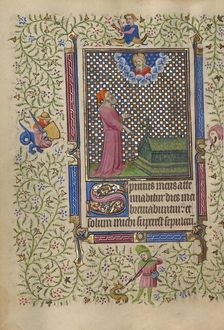 Spiritus meus atte
nuabitur dies mei
breviabuntur: et
solum michi superest sepulcrum.